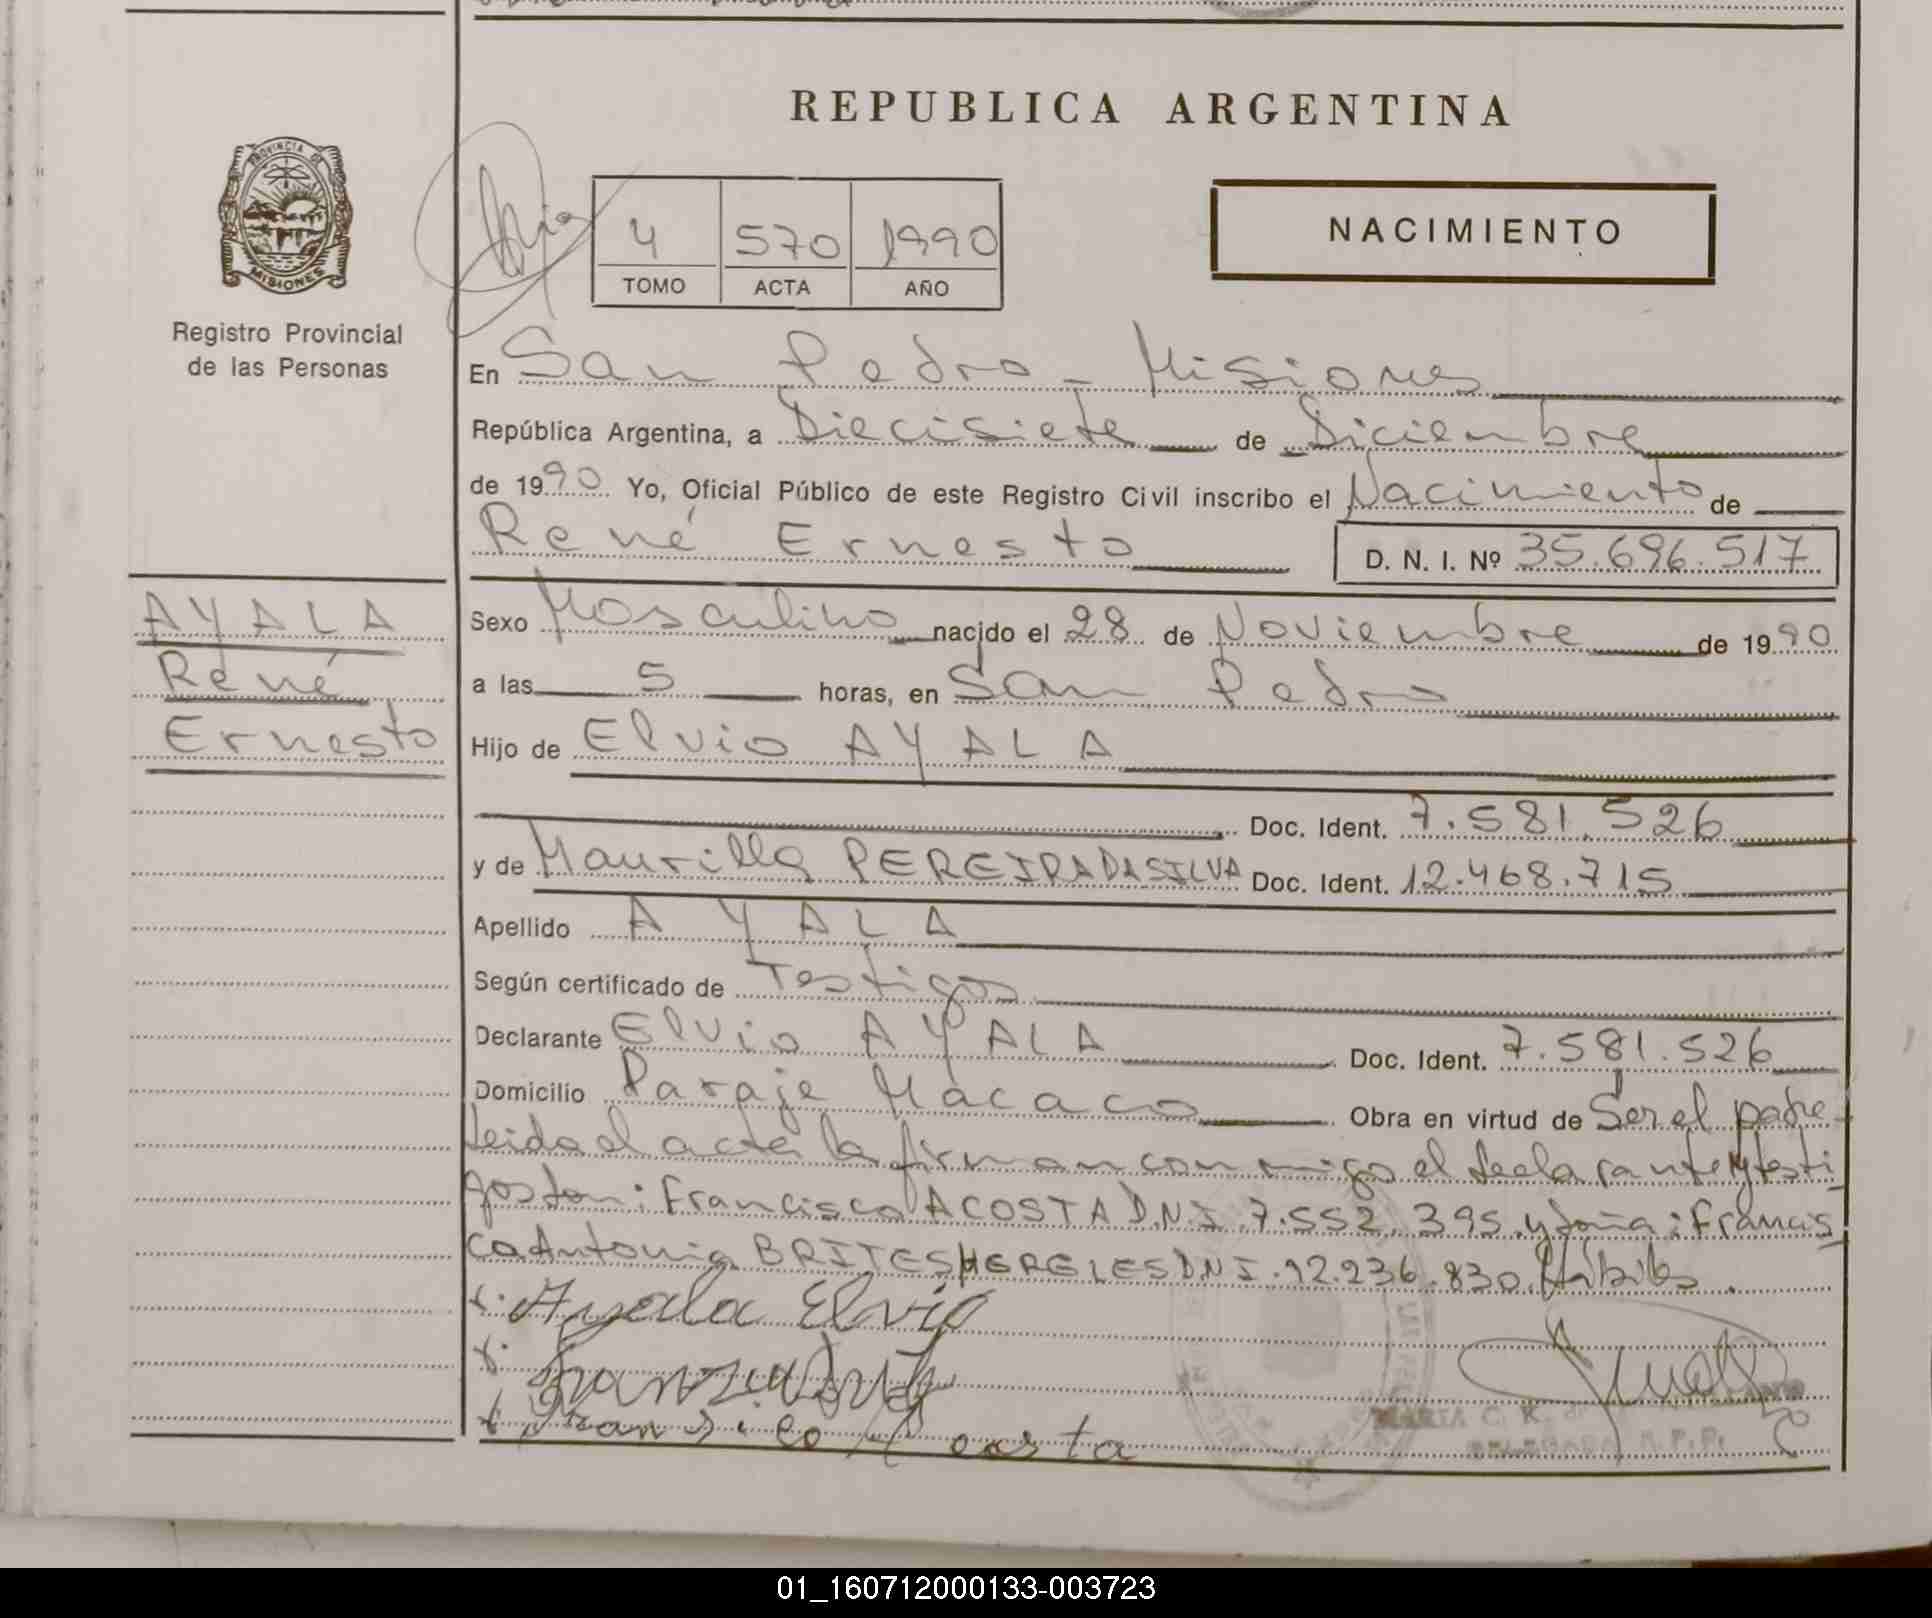 REPUBLICA ARGENTINA
PROVINCIA DE
MISIONES
Registro Provincial
de las Personas
4 570 1990
TOMO ACTA AÑO
NACIMIENTO
En San Pedro - Misiones
República Argentina, a Diecisiete de Diciembre
de 1990 Yo, Oficial Público de este Registro Civil inscribo el Nacimiento de
René Ernesto D. N. I. Nº 35.696.517
AYALA
René
Ernesto
Sexo Masculino nacido el 28 de Noviembre de 1990
a las 5 horas, en San Pedro
Hijo de Elvio AYALA
Doc. Ident. 7.581.526
y de Maurilla PEREIRA DA SILVA Doc. Ident. 12.468.715
Apellido AYALA
Según certificado de Testigos
Declarante Elvio AYALA Doc. Ident. 7.581.526
Domicilio Paraje Macaco Obra en virtud de Ser el padre-
Leida el acta la firman conmigo el declarante y testi
gos don: Francisco ACOSTA D.N.I. 7.552.395. y doña: Francis
ca Antonia BRITES D.N.I. 12.236.830. Hábiles.
x. Ayala Elvio
x.
x Fransico Acosta
MARTA C. K. de
DELEGADA R.P.P.
01_160712000133-003723